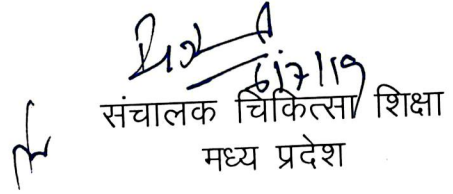 6/7/19
संचालक चिकित्सा शिक्षा
मध्य प्रदेश